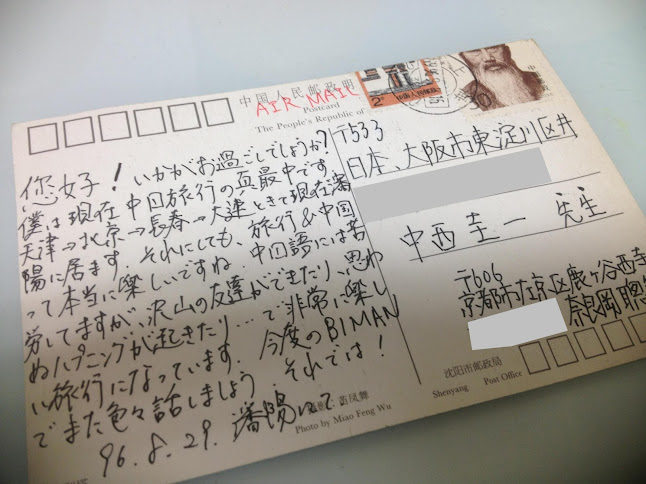 中国人民邮政明
AIR MAIL
Postcard
The People's Republic of
2分
中国人民邮政
您好！いかがお過ごしでしょうか？
僕は現在中国旅行の真最中です。
天津→北京→長春→大連ときて現在瀋
陽に居ます。それにしても、旅行&中国
って本当に楽しいですね。中国語には苦
労してますが、沢山の友達ができたり、思わ
ぬハプニングが起きたり…で非常に楽し
い旅行になっています。今度のBIMAN
でまた色々話しましょう。それでは！
96.8.29. 瀋陽にて
〒533
日本 大阪市東淀川区井
中西圭一 先生
〒606
京都市左京区鹿ヶ谷西寺
奈良岡聰
沈阳市邮政局
Shenyang Post Office
苗凤舞
Photo by Miao Feng Wu